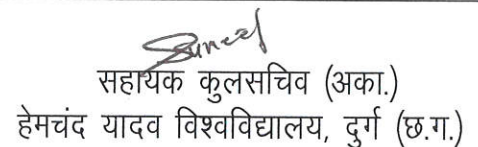 Suneel
सहायक कुलसचिव (अका.)
हेमचंद यादव विश्वविद्यालय, दुर्ग (छ.ग.)